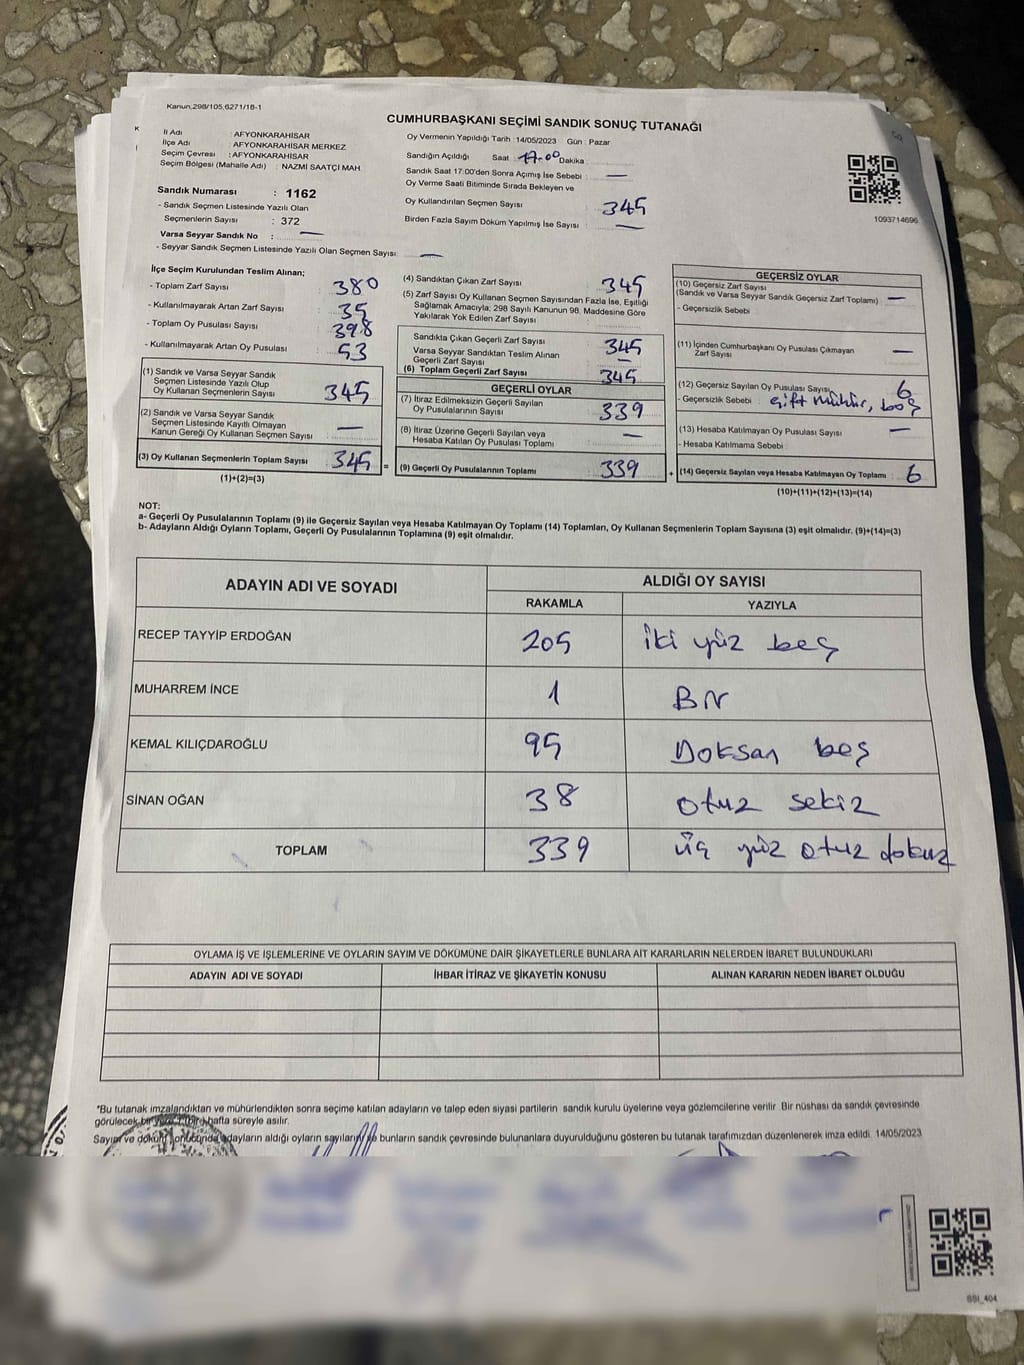 Kanun.298/105,6271/18-1
CUMHURBAŞKANI SEÇİMİ SANDIK SONUÇ TUTANAĞI
İl Adı : AFYONKARAHİSAR
İlçe Adı : AFYONKARAHİSAR MERKEZ
Seçim Çevresi : AFYONKARAHİSAR
Seçim Bölgesi (Mahalle Adı) : NAZMİ SAATÇİ MAH
Sandık Numarası : 1162
- Sandık Seçmen Listesinde Yazılı Olan
Seçmenlerin Sayısı : 372
Varsa Seyyar Sandık No : —
- Seyyar Sandık Seçmen Listesinde Yazılı Olan Seçmen Sayısı: —
Oy Vermenin Yapıldığı Tarih :14/05/2023 Gün : Pazar
Sandığın Açıldığı Saat :17.00 Dakika
Sandık Saat 17:00'den Sonra Açımış İse Sebebi : —
Oy Verme Saati Bitiminde Sırada Bekleyen ve
Oy Kullandırılan Seçmen Sayısı : 345
Birden Fazla Sayım Döküm Yapılmış İse Sayısı : —
1093714696
İlçe Seçim Kurulundan Teslim Alınan;
- Toplam Zarf Sayısı : 380
- Kullanılmayarak Artan Zarf Sayısı : 35
- Toplam Oy Pusulası Sayısı : 398
- Kullanılmayarak Artan Oy Pusulası : 53
(1) Sandık ve Varsa Seyyar Sandık
Seçmen Listesinde Yazılı Olup
Oy Kullanan Seçmenlerin Sayısı : 345
(2) Sandık ve Varsa Seyyar Sandık
Seçmen Listesinde Kayıtlı Olmayan
Kanun Gereği Oy Kullanan Seçmen Sayısı : —
(3) Oy Kullanan Seçmenlerin Toplam Sayısı : 345 =
(1)+(2)=(3)
(4) Sandıktan Çıkan Zarf Sayısı : 345
(5) Zarf Sayısı Oy Kullanan Seçmen Sayısından Fazla İse, Eşitliği
Sağlamak Amacıyla; 298 Sayılı Kanunun 98. Maddesine Göre
Yakılarak Yok Edilen Zarf Sayısı :
Sandıkta Çıkan Geçerli Zarf Sayısı : 345
Varsa Seyyar Sandıktan Teslim Alınan
Geçerli Zarf Sayısı : —
(6) Toplam Geçerli Zarf Sayısı : 345
GEÇERLİ OYLAR
(7) İtiraz Edilmeksizin Geçerli Sayılan
Oy Pusulalarının Sayısı : 339
(8) İtiraz Üzerine Geçerli Sayılan veya
Hesaba Katılan Oy Pusulası Toplamı : —
(9) Geçerli Oy Pusulalarının Toplamı : 339 +
GEÇERSİZ OYLAR
(10) Geçersiz Zarf Sayısı
(Sandık ve Varsa Seyyar Sandık Geçersiz Zarf Toplamı) : —
- Geçersizlik Sebebi :
(11) İçinden Cumhurbaşkanı Oy Pusulası Çıkmayan
Zarf Sayısı : —
(12) Geçersiz Sayılan Oy Pusulası Sayısı : 6
- Geçersizlik Sebebi : çift mühür, boş
(13) Hesaba Katılmayan Oy Pusulası Sayısı : —
- Hesaba Katılmama Sebebi :
(14) Geçersiz Sayılan veya Hesaba Katılmayan Oy Toplamı : 6
(10)+(11)+(12)+(13)=(14)
NOT:
a- Geçerli Oy Pusulalarının Toplamı (9) ile Geçersiz Sayılan veya Hesaba Katılmayan Oy Toplamı (14) Toplamları, Oy Kullanan Seçmenlerin Toplam Sayısına (3) eşit olmalıdır. (9)+(14)=(3)
b- Adayların Aldığı Oyların Toplamı, Geçerli Oy Pusulalarının Toplamına (9) eşit olmalıdır.
ADAYIN ADI VE SOYADI ALDIĞI OY SAYISI
RAKAMLA YAZIYLA
RECEP TAYYİP ERDOĞAN 205 iki yüz beş
MUHARREM İNCE 1 BİR
KEMAL KILIÇDAROĞLU 95 Doksan beş
SİNAN OĞAN 38 otuz sekiz
TOPLAM 339 üç yüz otuz dokuz
OYLAMA İŞ VE İŞLEMLERİNE VE OYLARIN SAYIM VE DÖKÜMÜNE DAİR ŞİKAYETLERLE BUNLARA AİT KARARLARIN NELERDEN İBARET BULUNDUKLARI
ADAYIN ADI VE SOYADI İHBAR İTİRAZ VE ŞİKAYETİN KONUSU ALINAN KARARIN NEDEN İBARET OLDUĞU
*Bu tutanak imzalandıktan ve mühürlendikten sonra seçime katılan adayların ve talep eden siyasi partilerin sandık kurulu üyelerine veya gözlemcilerine verilir. Bir nüshası da sandık çevresinde
görülecek bir yere 1 (bir) hafta süreyle asılır.
Sayım ve döküm sonucunda adayların aldığı oyların sayılarını ve bunların sandık çevresinde bulunanlara duyurulduğunu gösteren bu tutanak tarafımızdan düzenlenerek imza edildi. 14/05/2023
SSI_404